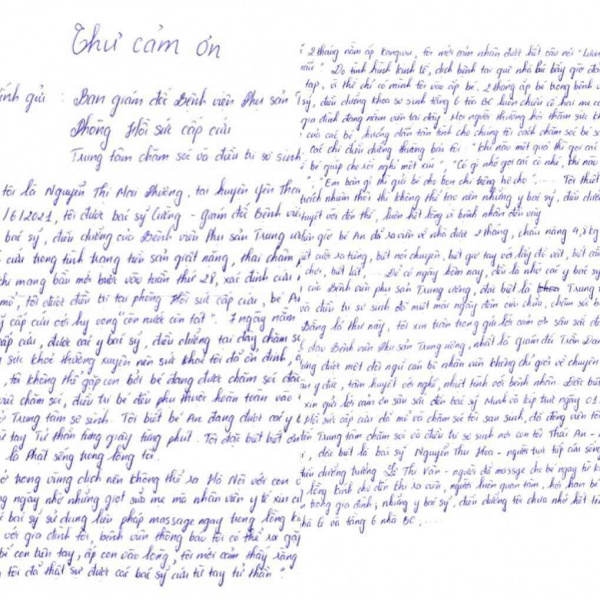 Thư cảm ơn
ính gửi : Ban giám đốc Bệnh viện Phụ sản T
Phòng Hồi sức cấp cứu
Trung tâm chăm sóc và điều trị sơ sinh
tôi là Nguyễn Thị Mai Phương, tại huyện Yên
/6/2021, tôi được bác sỹ Cường - giám đốc Bệnh viện
bác sỹ, điều dưỡng của Bệnh viện Phụ sản Trung ư
cứu trong tình trạng tiền sản giật nặng, thai chậm
chỉ mang bầu mới bước vào tuần thứ 28, xác định cứu
mổ, tôi được điều trị tại phòng Hồi sức cấp cứu, bé An
cấp cứu với hy vọng "còn nước còn tát". 7 ngày nằm
cấp cứu, được các y bác sỹ, điều dưỡng tại đây chăm s
sức khoẻ thường xuyên nên sức khoẻ tôi đã ổn định,
, tôi không thể gặp con bởi bé đang được chăm sóc đặc
việc chăm sóc, điều trị bé phụ thuộc hoàn toàn vào
Trung tâm sơ sinh. Tôi biết bé An đang được các y b
từ tay Tử thần từng giây từng phút. Tôi đặc biệt biết ơn
là Phật sống trong lòng tôi.
ở trong vùng dịch nên không thể ra Hà Nội với con
ng ngày nhờ những giọt sữa mẹ mà nhân viên y tế xin
bác sỹ sử dụng liệu pháp massage ngay trong lồng k
với gia đình tôi, bệnh viện thông báo tôi có thể ra gặp
bế con trên tay, ấp con vào lòng, tôi mới cảm thấy rằng
tôi đã thật sự được các bác sỹ cứu từ tay tử thần"
2 tháng nằm ấp Kangaru, tôi mới cảm nhận được hết câu nói "lương
mẫu". Do tình hình kinh tế, dịch bệnh tại quê nhà lúc bấy giờ đang
tạp, vì thế chỉ có mình tôi vào ấp bé. 2 tháng ấp bé trong bệnh v
sỹ, điều dưỡng khoa sơ sinh tầng 6 toà BC luôn chiều cả hai mẹ co
gia đình đông năm viện tại đây. Mọi người thường hỏi thăm sức kh
của các bé hướng dẫn tận tình cho chúng tôi cách chăm sóc bé s
các chị điều dưỡng thường bảo tôi: "Khi nào mệt quá thì gọi các
bé giúp cho rồi nghỉ một xíu". "Có gì nhớ gọi các cô nhé, khi nào
"Em bận gì thì gửi bé cho bọn chị trông hộ cho".... Tôi thiết
trách nhiệm thôi thì không thể tạo nên những y bác sỹ, điều dưỡ
tuyệt vời đến thế, luôn hết lòng vì bệnh nhân đến vậy
bây giờ bé An đã ra viện về nhà được 2 tháng, cháu nặng 4,3 kg
cười ra tiếng, biết nói chuyện, biết giơ tay với lấy đồ vật, biết cầm
chơi, biết lật,.... Để có ngày hôm nay, đều là nhờ các y bác sỹ
của Bệnh viện phụ sản Trung ương, đặc biệt là Trung t
và điều trị sơ sinh đã mất mấy ngày đêm cứu chữa, chăm só
Bằng lá thư này, tôi xin trân trọng gửi lời cảm ơn sâu sắc đế
đạo Bệnh viện Phụ sản Trung ương, nhất là giám đốc Trần Dan
ng được một đội ngũ cán bộ nhân viên không chỉ giỏi về chuyên
y đức, tâm huyết với nghề, nhiệt tình với bệnh nhân. Đặc biệt
xin gửi lời cảm ơn sâu sắc đến bác sỹ Minh và kíp trực ngày 01
Hồi sức cấp cứu đã mổ và chăm sóc tôi sau sinh, đã động viên tôi
ên Trung tâm chăm sóc và điều trị sơ sinh nơi con tôi Thái An -
, đặc biệt là bác sỹ Nguyễn Thu Hoa - người trực tiếp cứu sống
điều dưỡng trưởng Lê Thu Vân - người đã massage cho bé ngay từ k
lồng kính cho đến khi ra viện, người luôn quan tâm, hỏi han bé
trong gia đình, những y bác sỹ, điều dưỡng tôi chưa nhớ hết tên
nhà G và tầng 6 nhà BC....